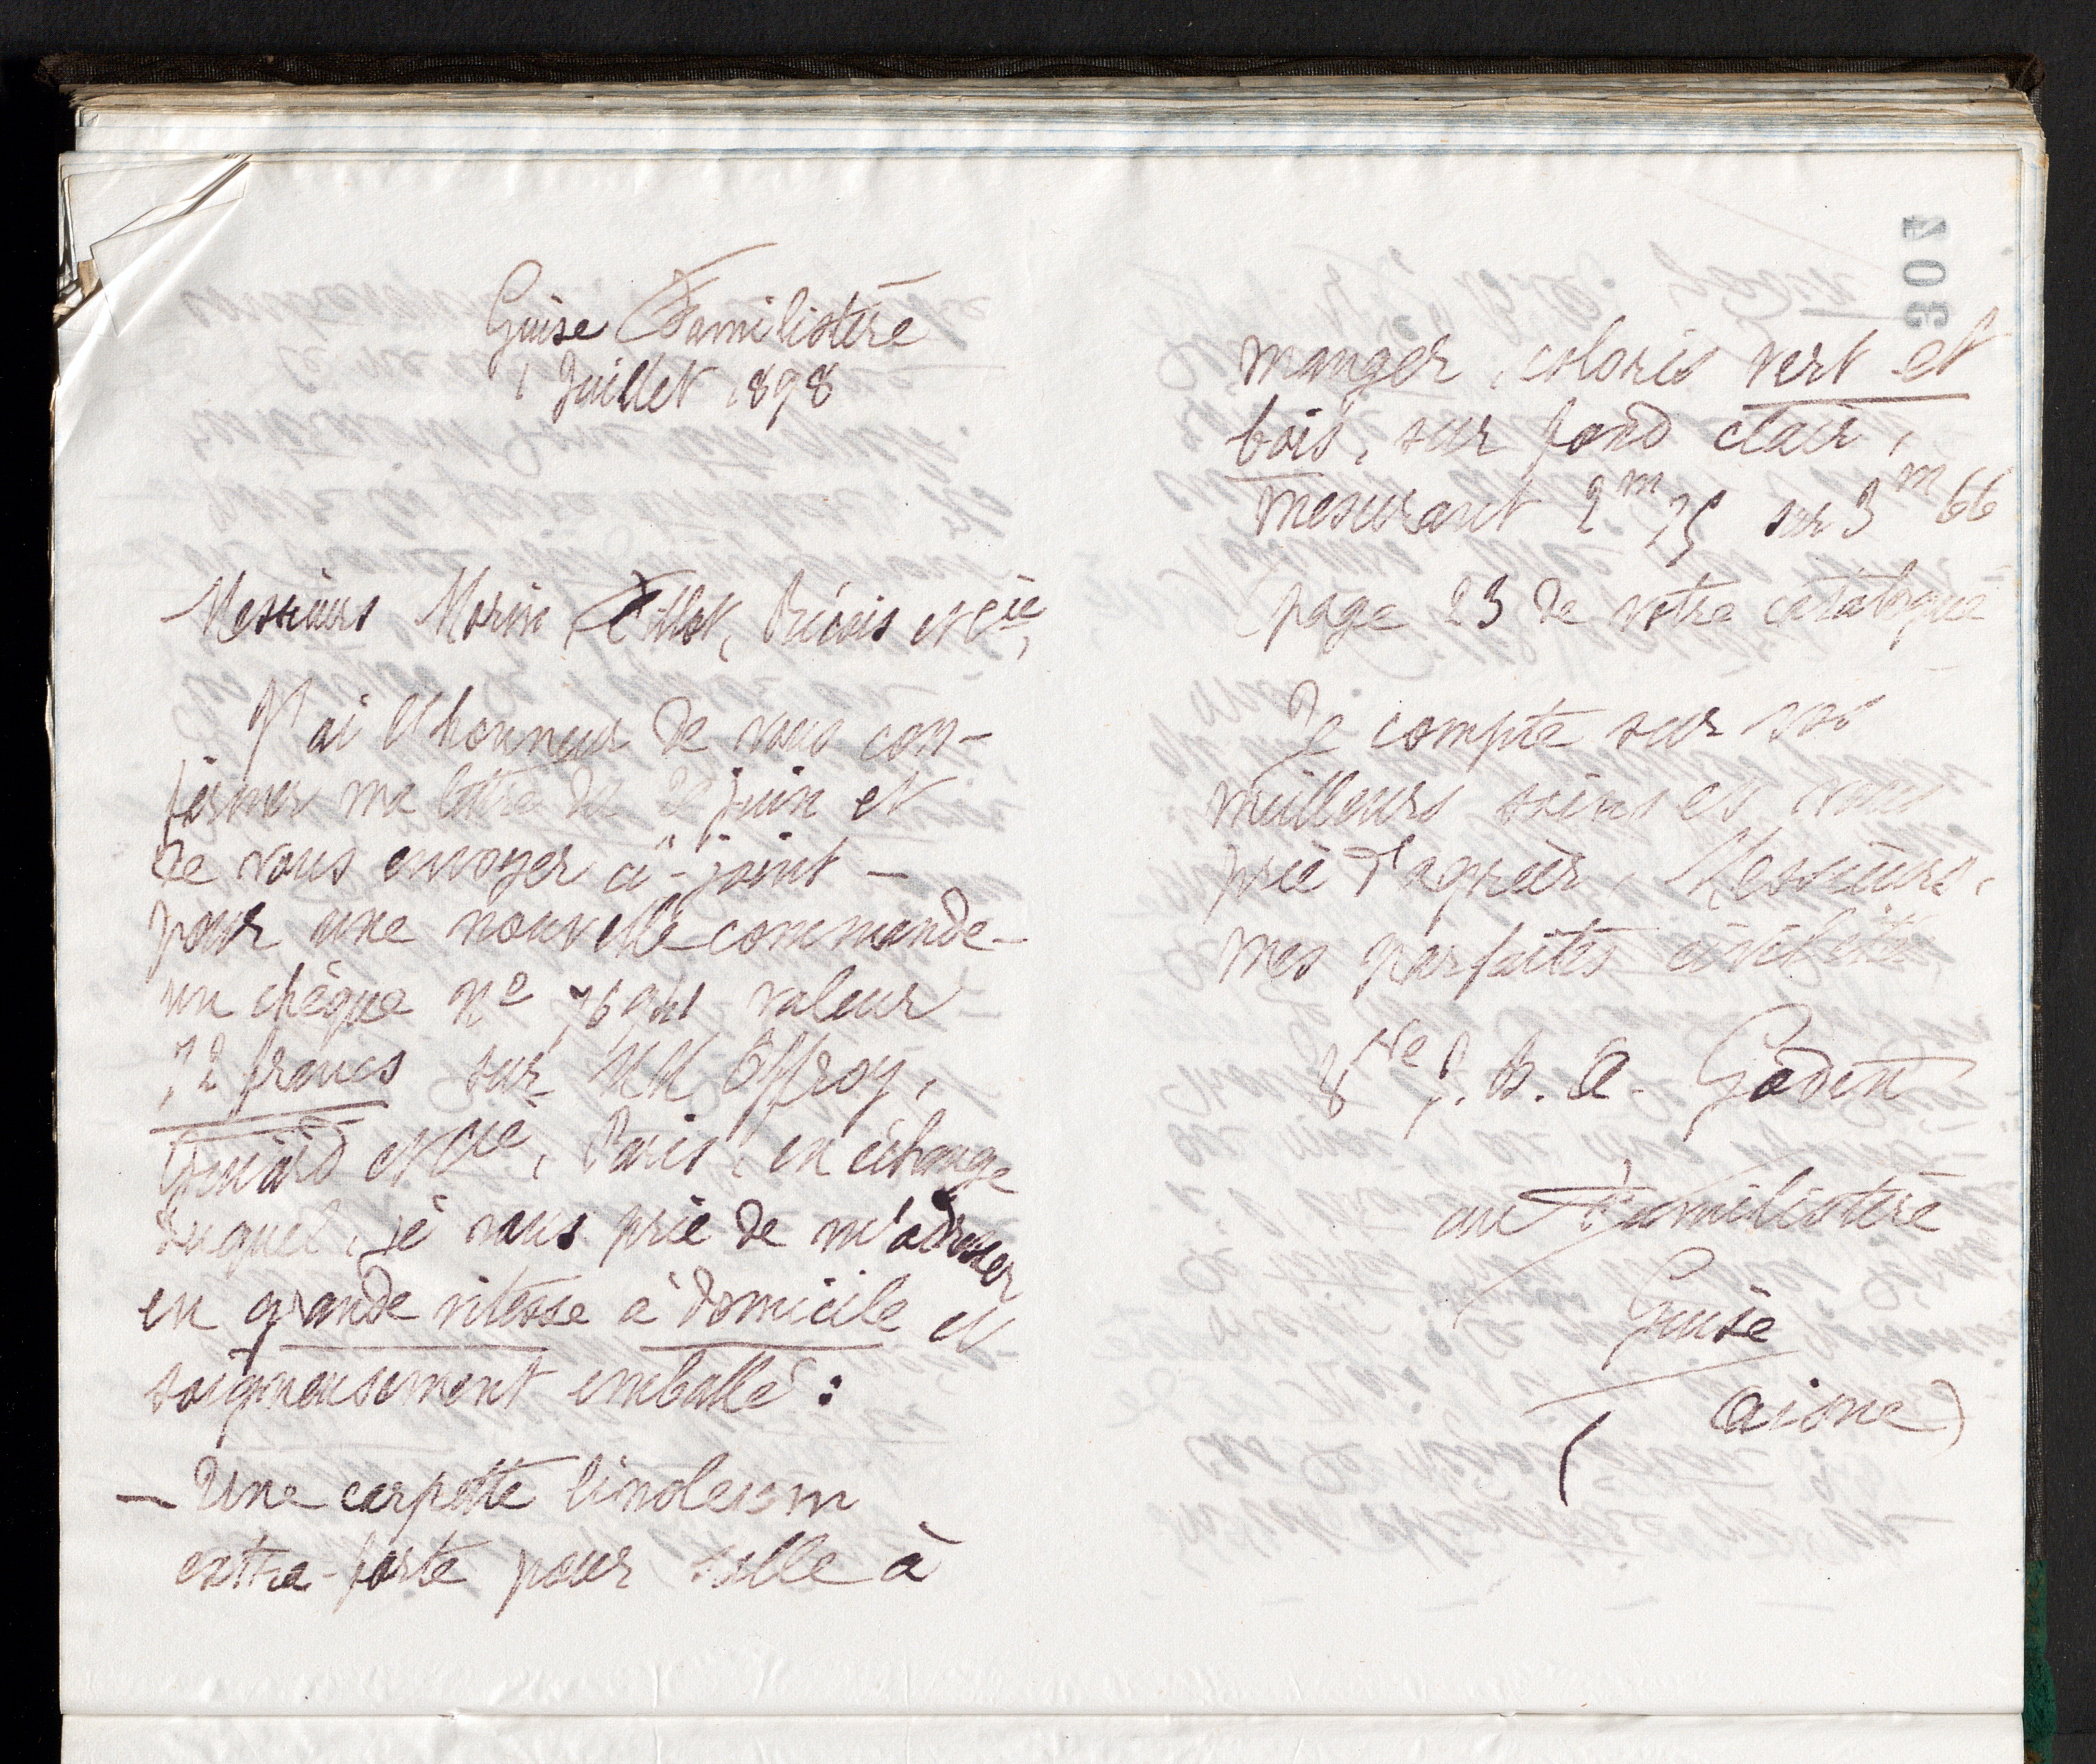 Guise Familistère
1 Juillet 1898
Messieurs Morin Fillot, Ricois et Cie,
J'ai l'honneur de vous con-
firmer ma lettre du juin et
de vous envoyer ci-joint -
pour une nouvelle commande -
un chèque No 76941 valeur
72 francs sur MM Offroy,
Guiard et Cie, Paris, en échange
duquel, je vous prie de m'adresser
en grande vitesse à domicile et
soigneusement emballé :
- Une carpette linoleum
extra-forte pour salle à
manger, coloris vert et
bois, sur fond clair,
mesurant 2m75 sur 3m66
(page 23 de votre catalogue
Je compte sur vos
meilleurs soins et vous
prie d'agréer, Messieurs,
mes parfaites civilités
Vve J. B. A. Godin
au Familistère
Guise
(Aisne)
307